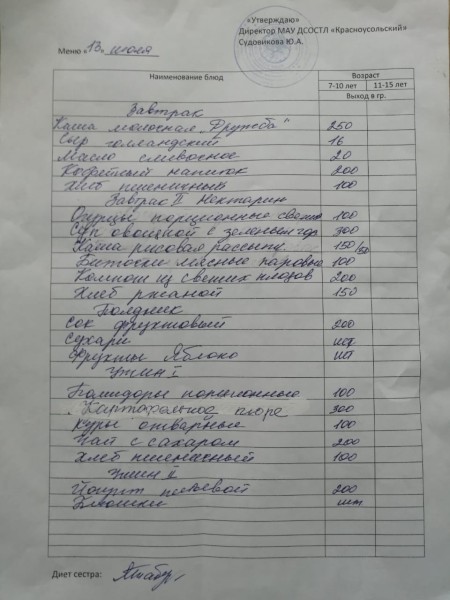 «Утверждаю»
Директор МАУ ДСОСТЛ «Красноусольский»
Судовикова Ю.А.
Меню «13» июля
Наименование блюд
Возраст
7-10 лет 11-15 лет
Выход в гр.
Завтрак
Каша молочная „Дружба“ 250
Сыр голландский 16
Масло сливочное 20
Кофейный напиток 200
Хлеб пшеничный 100
Завтрак II Нектарин
Огурцы порционные свежие 100
Суп овощной с зеленым гор 300
Каша рисовая рассыпч 150/50
Биточки мясные паровые 100
Компот из свежих плодов 200
Хлеб ржаной 150
Полдник
Сок фруктовый 200
Сухари шт
Фрукты Яблоко шт
Ужин I
Помидоры порционные 100
Картофельное пюре 300
Куры отварные 100
Чай с сахаром 200
Хлеб пшеничный 100
Ужин II
Йогурт питьевой 200
шт
Диет сестра: